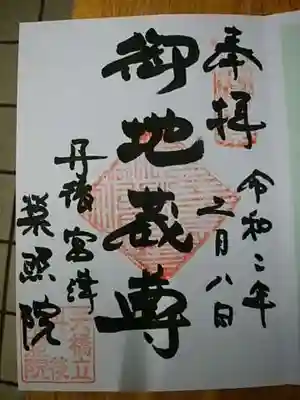 奉拝
令和二年
二月八日
御地蔵尊
丹後宮津
榮照院
天橋立